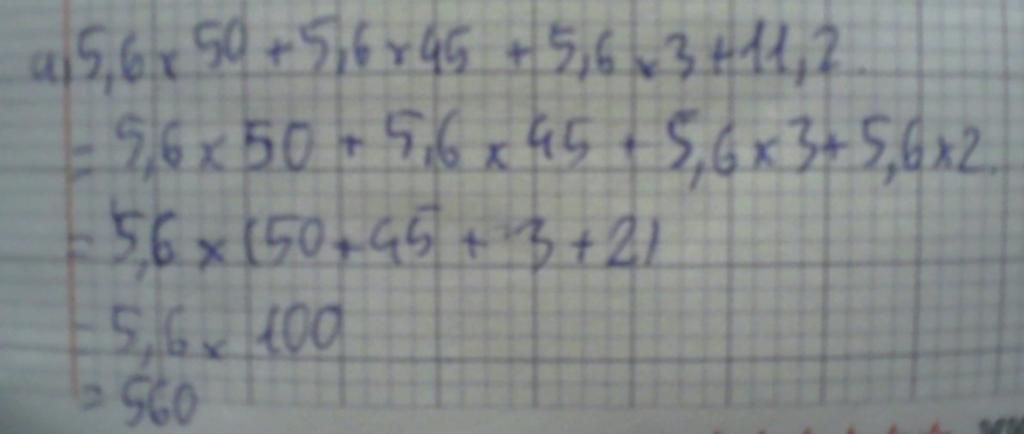 a, 5,6 x 50 + 5,6 x 45 + 5,6 x 3 + 11,2.
= 5,6 x 50 + 5,6 x 45 + 5,6 x 3 + 5,6 x 2.
= 5,6 x (50 + 45 + 3 + 2)
= 5,6 x 100
= 560